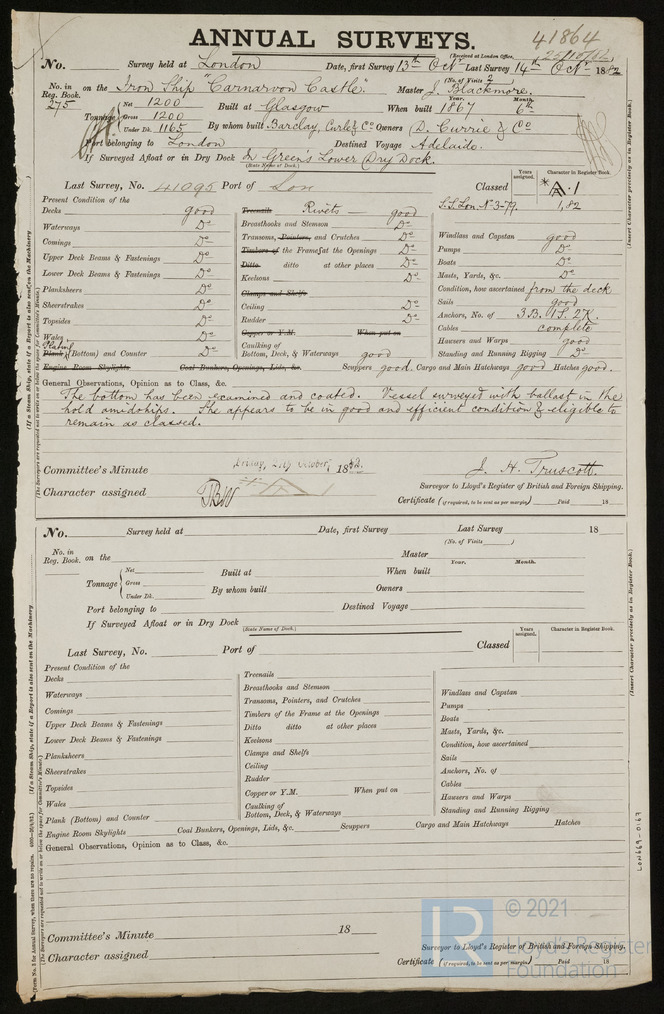 ANNUAL SURVEYS.
41864
(Received at London Office,
No. Survey held at London Date, first Survey 13th Oct Last Survey 14th Oct 1882
(No. of Visits 2)
No. in Reg. Book. 275 on the Iron Ship "Carnarvon Castle". Master J. Blackmore.
Tonnage Net 1200 Built at Glasgow When built Year. 1867 Month. 6th
Gross 1200
Under Dk. 1165 By whom built Barclay, Curle & Co Owners D. Currie & Co
Port belonging to London Destined Voyage Adelaide.
If Surveyed Afloat or in Dry Dock In Green's Lower Dry Dock.
(State Name of Dock.)
Last Survey, No. 41095 Port of Lon Classed Years assigned. Character in Register Book. A.1
S.S.Lon. No 3-79. 1,82
Present Condition of the
Decks good
Waterways Do
Comings Do
Upper Deck Beams & Fastenings Do
Lower Deck Beams & Fastenings Do
Planksheers Do
Sheerstrakes Do
Topsides Do
Wales Do
Plating
Plank (Bottom) and Counter Do
Treenails Rivets good
Breasthooks and Stemson Do
Transoms, Pointers, and Crutches Do
Timbers of the Frames at the Openings Do
Ditto ditto at other places Do
Keelsons Do
Clamps and Shelfs
Ceiling Do
Rudder Do
Copper or Y.M. When put on
Caulking of
Bottom, Deck, & Waterways good
Windlass and Capstan good
Pumps Do
Boats Do
Masts, Yards, &c. Do
Condition, how ascertained from the deck
Sails good
Anchors, No. of 3B. 1S. 2K.
Cables complete
Hawsers and Warps good
Standing and Running Rigging Do
Engine Room Skylights Coal Bunkers, Openings, Lids, &c. Scuppers good. Cargo and Main Hatchways good Hatches good.
General Observations, Opinion as to Class, &c.
The bottom has been examined and coated. Vessel surveyed with ballast in the
hold amidships. She appears to be in good and efficient condition & eligible to
remain as classed.
Committee's Minute 1882.
J. H. Truscott.
Character assigned
Surveyor to Lloyd's Register of British and Foreign Shipping.
Certificate (if required, to be sent as per margin) Paid 18
No. Survey held at Date, first Survey Last Survey 18
(No. of Visits )
No. in Reg. Book. on the Master
Tonnage Net Built at When built Year. Month.
Gross
Under Dk. By whom built Owners
Port belonging to Destined Voyage
If Surveyed Afloat or in Dry Dock
(State Name of Dock.)
Last Survey, No. Port of Classed Years assigned. Character in Register Book.
Present Condition of the
Decks
Waterways
Comings
Upper Deck Beams & Fastenings
Lower Deck Beams & Fastenings
Planksheers
Sheerstrakes
Topsides
Wales
Plank (Bottom) and Counter
Treenails
Breasthooks and Stemson
Transoms, Pointers, and Crutches
Timbers of the Frame at the Openings
Ditto ditto at other places
Keelsons
Clamps and Shelfs
Ceiling
Rudder
Copper or Y.M. When put on
Caulking of
Bottom, Deck, & Waterways
Windlass and Capstan
Pumps
Boats
Masts, Yards, &c.
Condition, how ascertained
Sails
Anchors, No. of
Cables
Hawsers and Warps
Standing and Running Rigging
Engine Room Skylights Coal Bunkers, Openings, Lids, &c. Scuppers Cargo and Main Hatchways Hatches
General Observations, Opinion as to Class, &c.
Committee's Minute 18
Character assigned
Surveyor to Lloyd's Register of British and Foreign Shipping.
Certificate (if required, to be sent as per margin) Paid 18
(Insert Character precisely as in Register Book.)
(Insert Character precisely as in Register Book.)
LON669-0167
LR © 2021
Lloyd's Register
Foundation